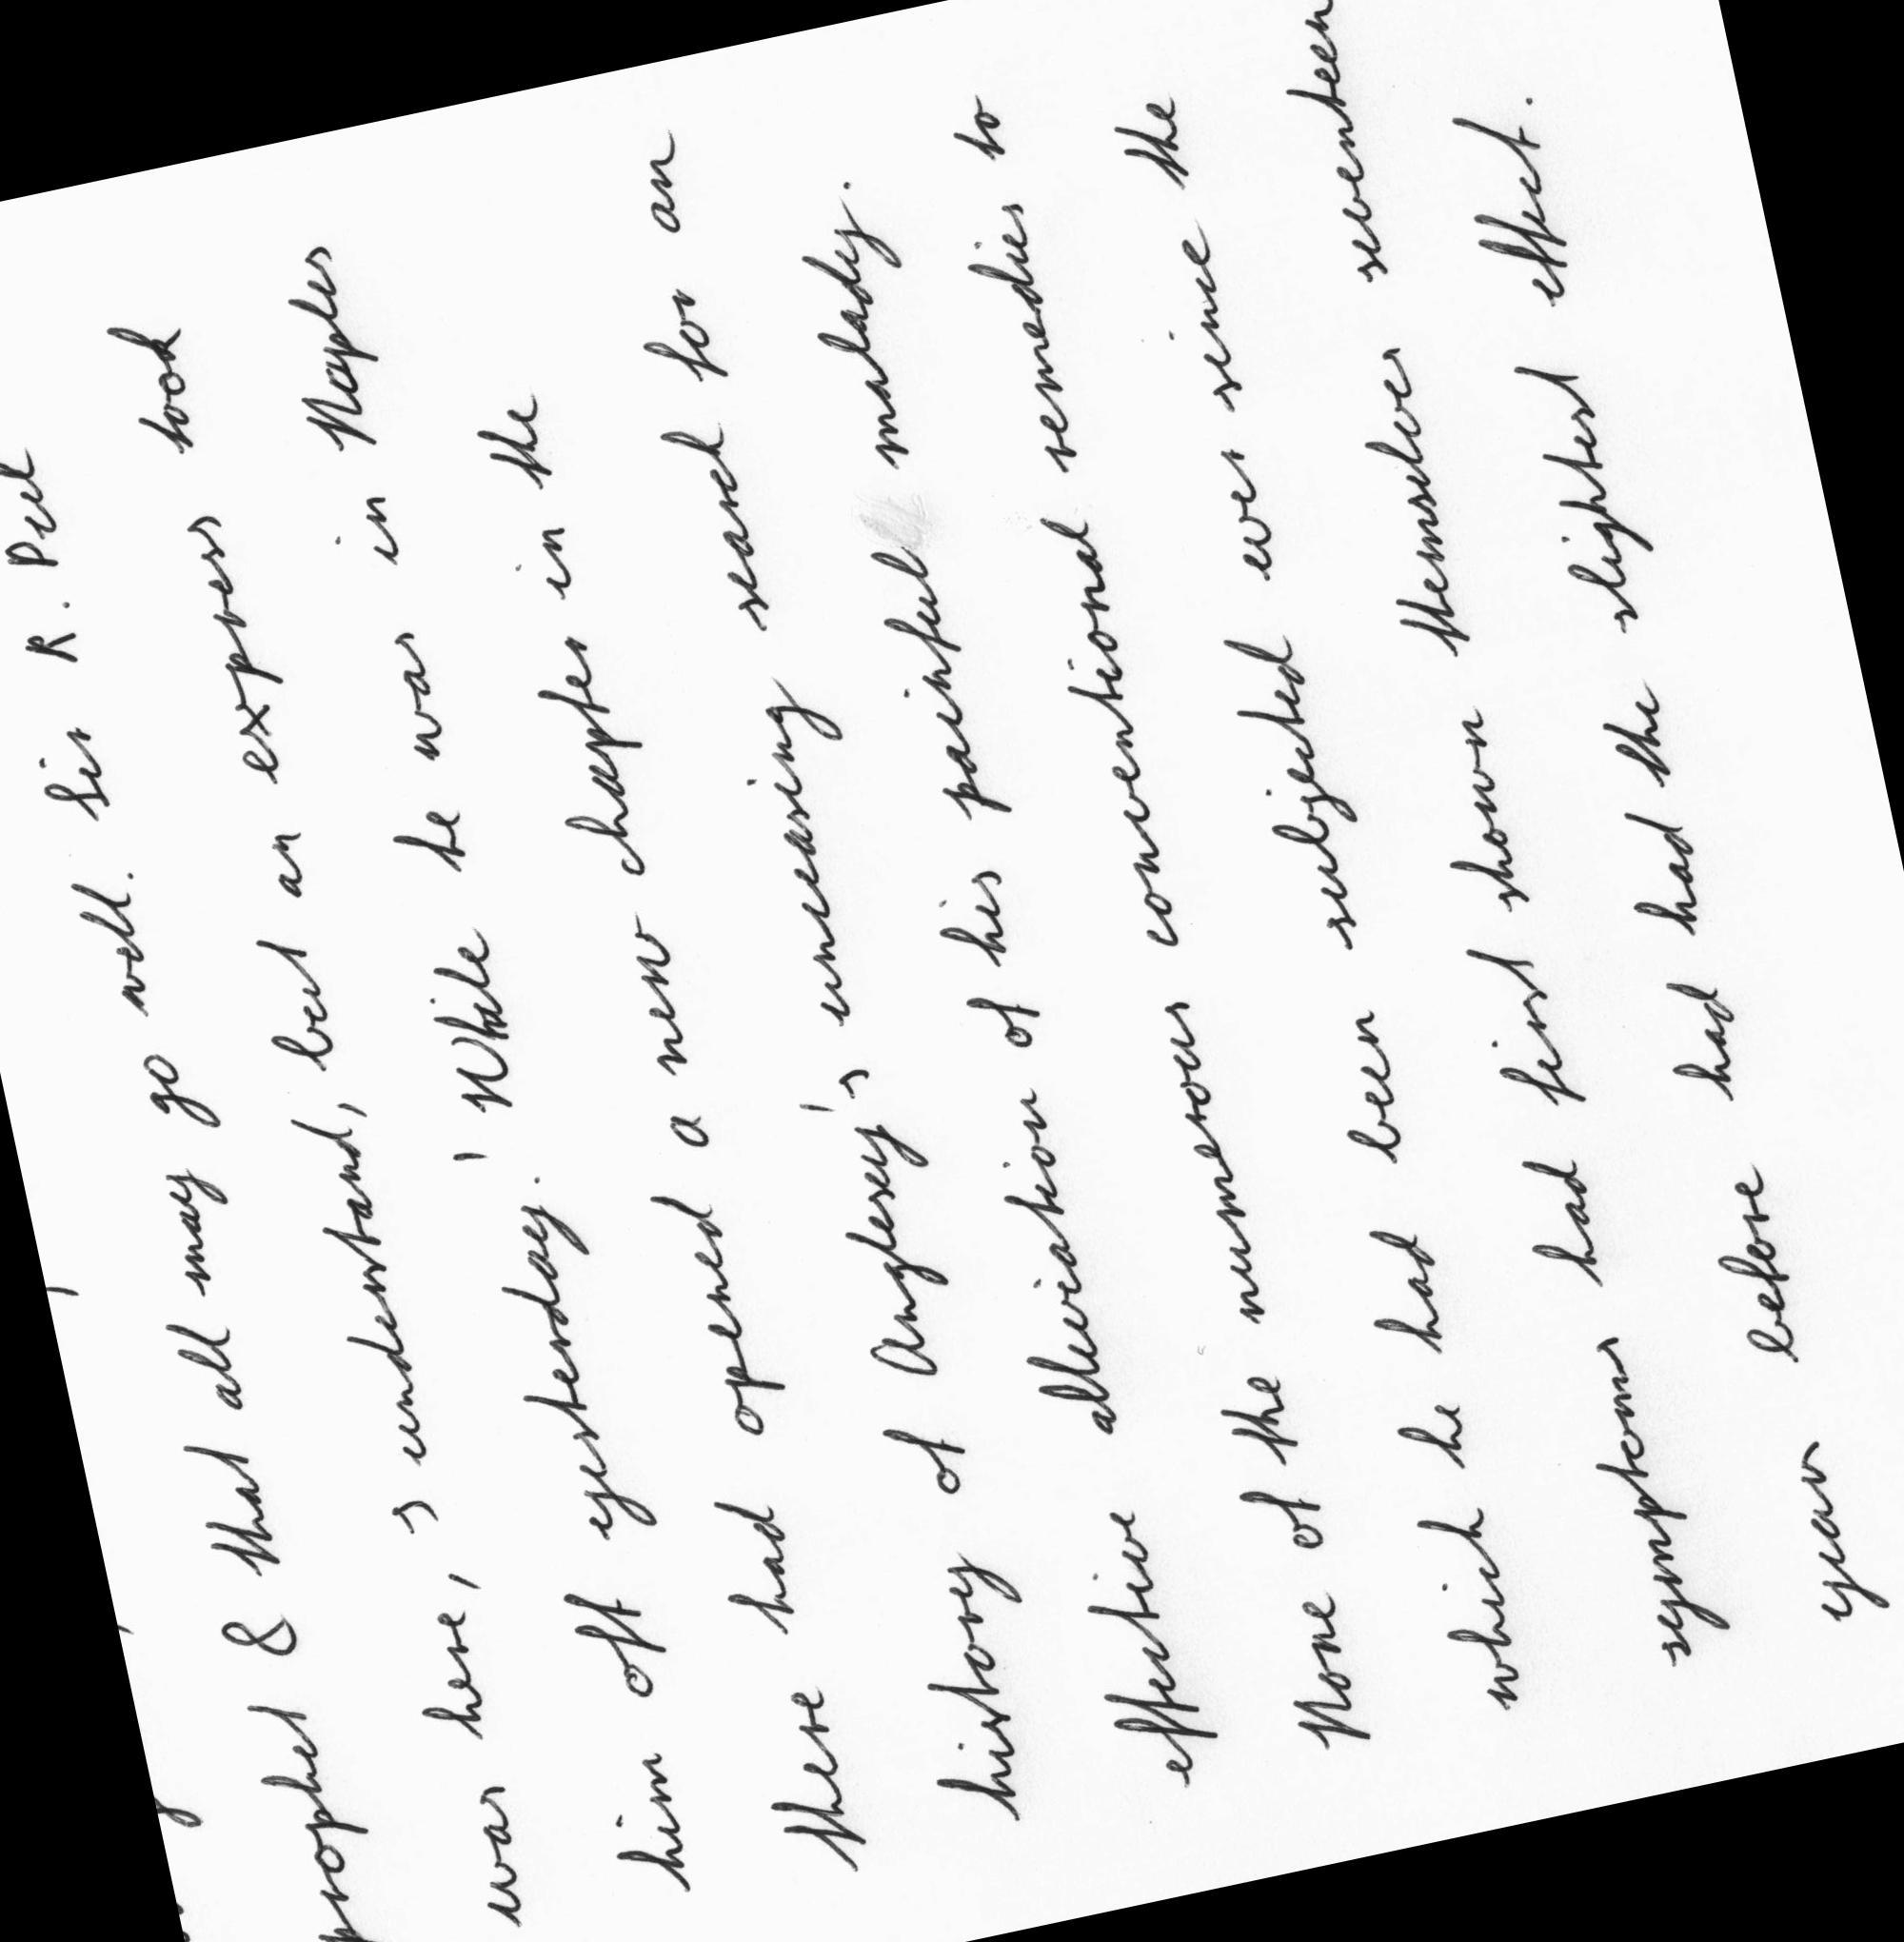 prophet & that all may go well. Sir R. Peel
was here, I understand, but an express took
him off yesterday.' While he was in Naples
there had opened a new chapter in the
history of Anglesey's unceasing search for an
effective alleviation of his painful malady.
None of the numerous conventional remedies to
which he had been subjected ever since the
symptoms had first shown themselves seventeen
year before had had the slightest effect.